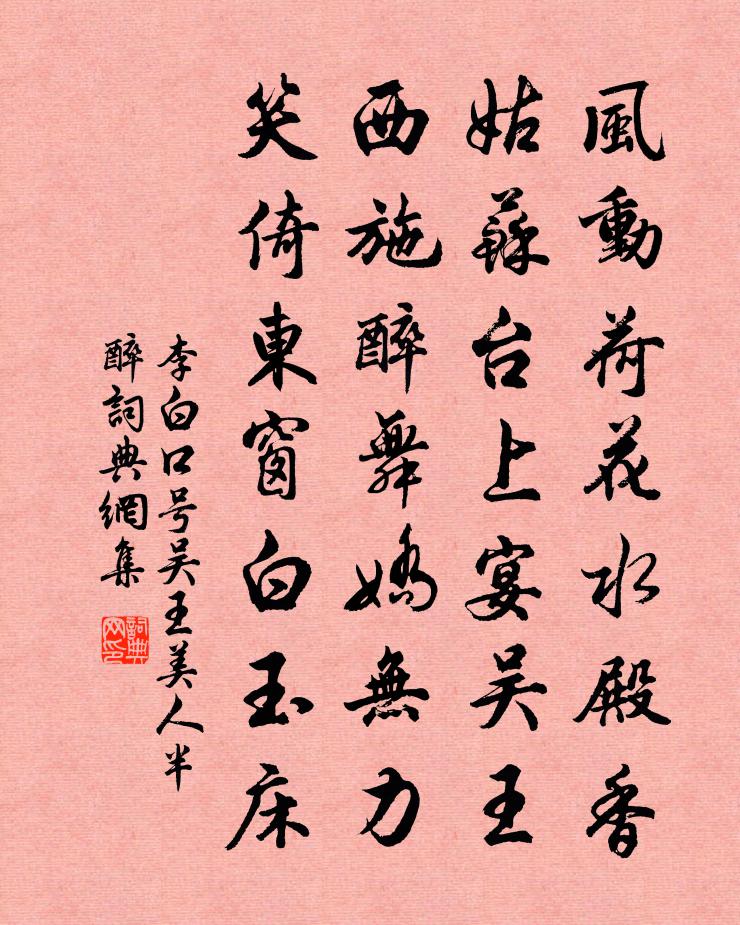 風動荷花水殿香
姑蘇台上宴吴王
西施醉舞嬌無力
笑倚東窗白玉床
李白口号吴王美人半
醉詞典網集
詞典网印